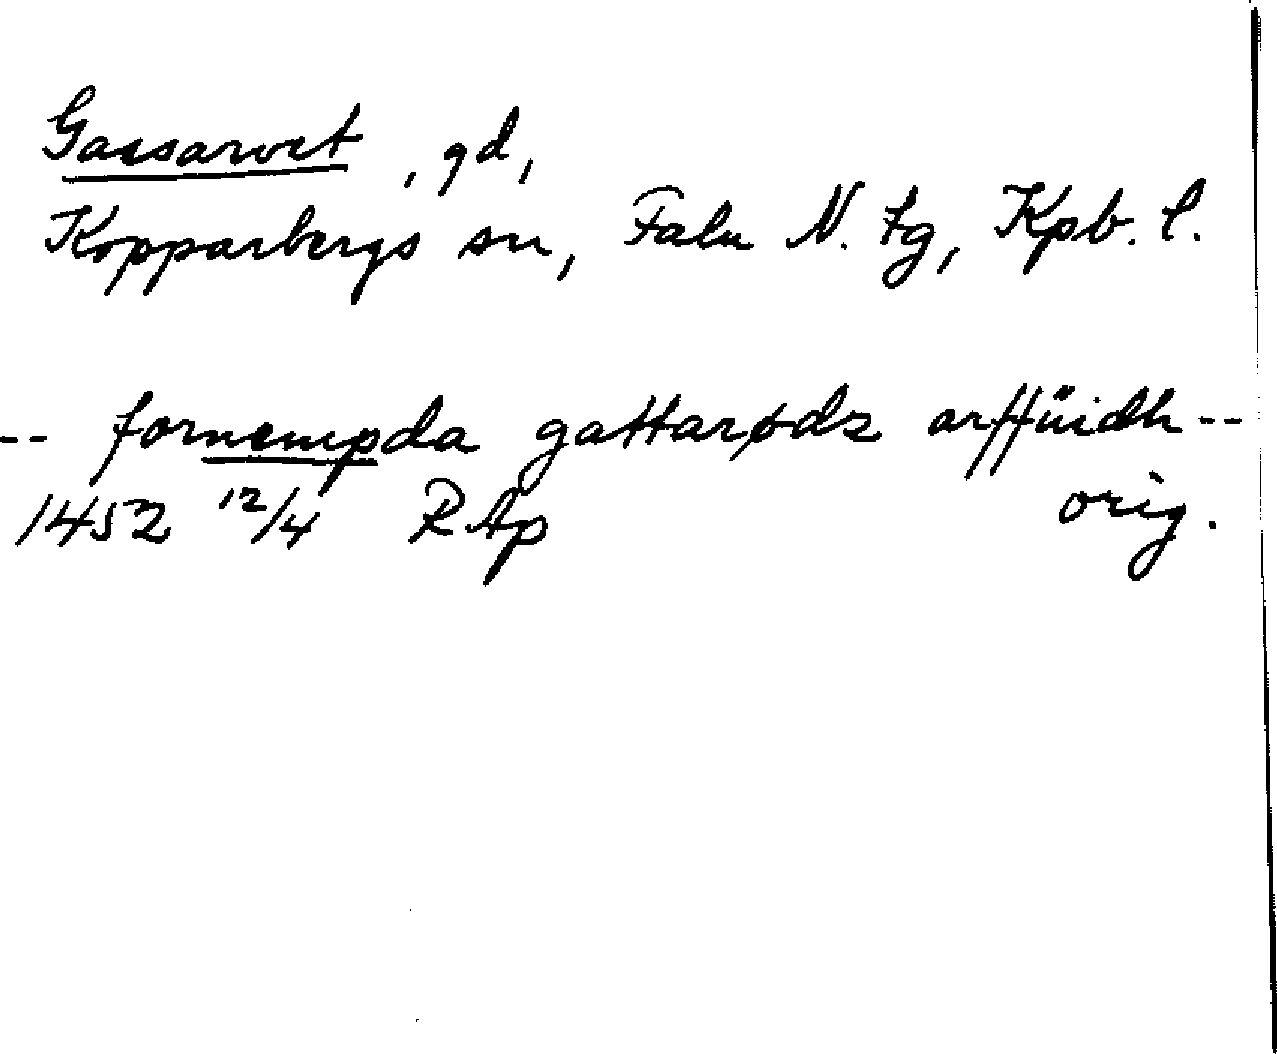 Gassarvet, gd,
Kopparbergs sn, Falu N. tg, Kpb. l.
-- fornempda gattarødz arffüidh --
1452 12/4 RAp orig.